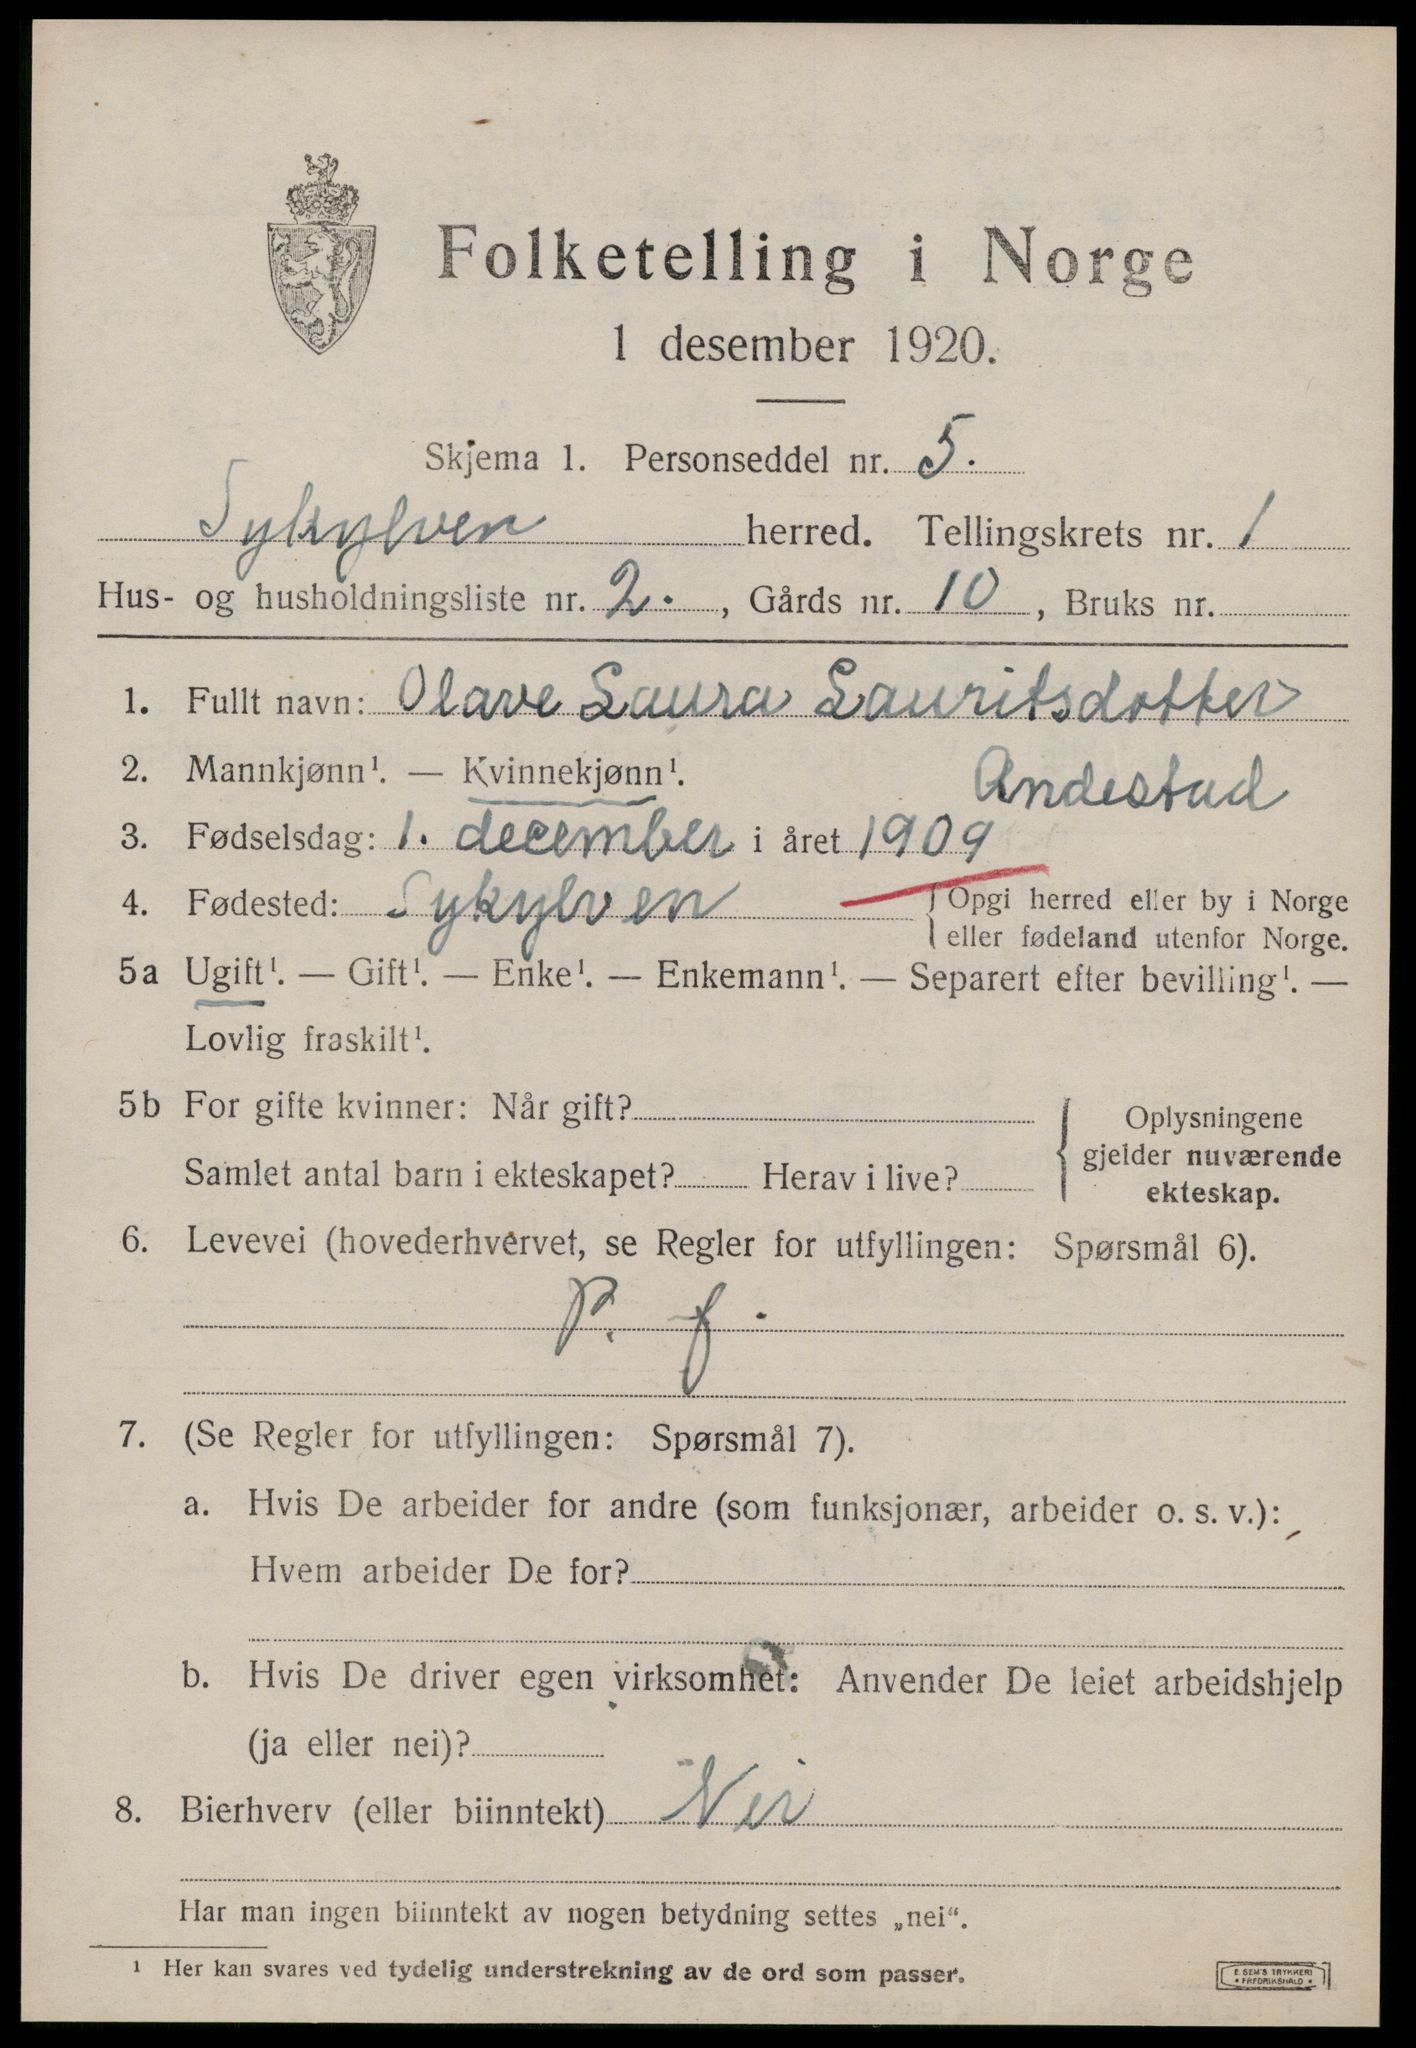 Folketelling i Norge
1 desember 1920.
Skjema 1. Personseddel nr. 5.
Sykylven herred. Tellingskrets nr. 1
Hus- og husholdningsliste nr. 2. , Gårds nr. 10 , Bruks nr.
1. Fullt navn: Olave Laura Lauritsdotter
Andestad
2. Mannkjønn¹. — Kvinnekjønn¹.
3. Fødselsdag: 1. december i året 1909
4. Fødested: Sykylven { Opgi herred eller by i Norge
eller fødeland utenfor Norge.
5a Ugift¹. — Gift¹. — Enke¹. — Enkemann¹. — Separert efter bevilling¹. —
Lovlig fraskilt¹.
5b For gifte kvinner: Når gift?
Samlet antal barn i ekteskapet? Herav i live?
{ Oplysningene
gjelder nuværende
ekteskap.
6. Levevei (hovederhvervet, se Regler for utfyllingen: Spørsmål 6).
P. f.
7. (Se Regler for utfyllingen: Spørsmål 7).
a. Hvis De arbeider for andre (som funksjonær, arbeider o. s. v.):
Hvem arbeider De for?
b. Hvis De driver egen virksomhet: Anvender De leiet arbeidshjelp
(ja eller nei)?
8. Bierhverv (eller biinntekt) Nei
Har man ingen biinntekt av nogen betydning settes „nei“.
¹ Her kan svares ved tydelig understrekning av de ord som passer.
E. SEM'S TRYKKERI
• FREDRIKSHALD •